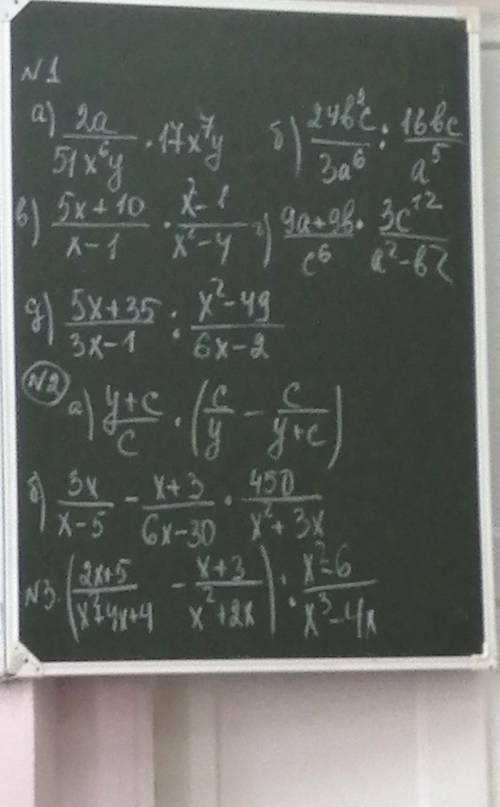 N1
а) 2a/(51x⁶y) · 17x⁷y б) 24b²c/(3a⁶) : 16bc/a⁵
в) (5x+10)/(x-1) · (x²-1)/(x²-4) г) (9a+9b)/c⁶ · 3c¹²/(a²-b²)
д) (5x+35)/(3x-1) : (x²-49)/(6x-2)
N2
а) (y+c)/c · (c/y - c/(y+c))
б) 3x/(x-5) - (x+3)/(6x-30) · 450/(x²+3x)
N3. ((2x+5)/(x²+4x+4) - (x+3)/(x²+2x)) : (x²-6)/(x³-4x)